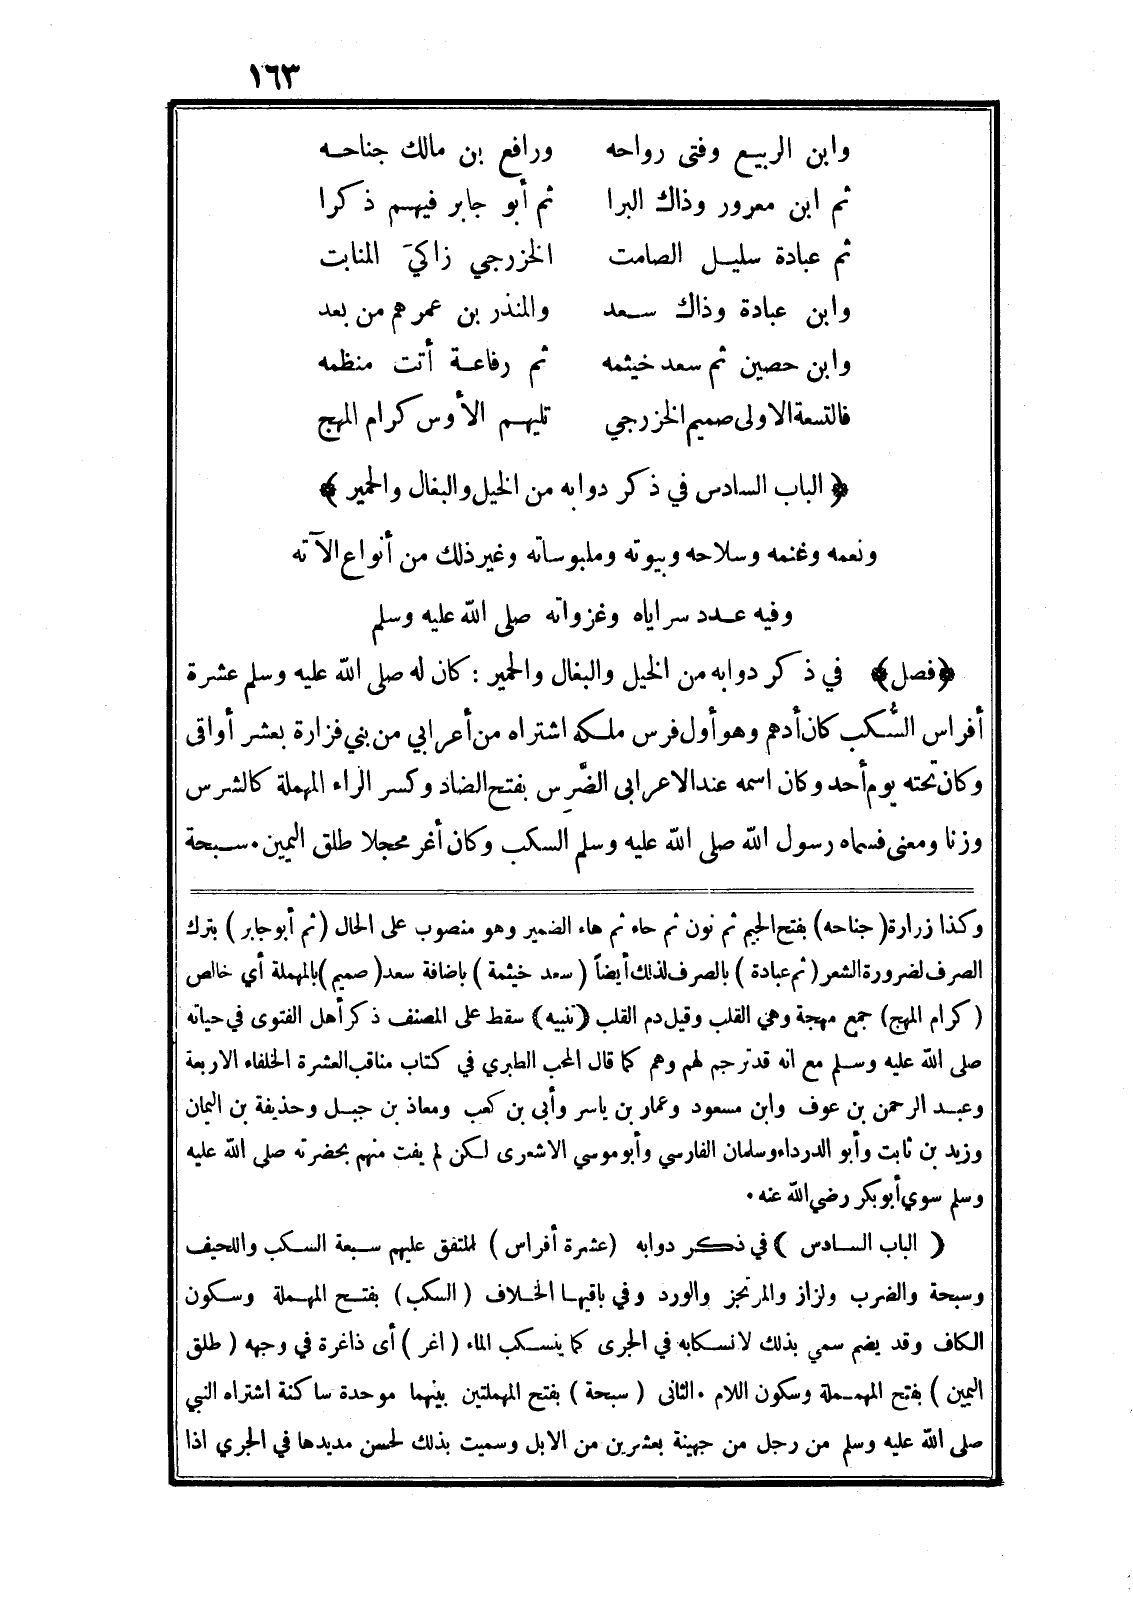 ١٦٣
وابن الربيع وفتى رواحه ورافع بن مالك جناحه
ثم ابن معرور وذاك البرا ثم أبو جابر فيهم ذكرا
ثم عبادة سليل الصامت الخزرجي زاكي المنابت
وابن عبادة وذاك سعد والمنذر بن عمرهم من بعد
وابن حصين ثم سعد خيثمه ثم رفاعة أتت منظمه
فالتسعة الاولى صميم الخزرجي تليهم الأوس كرام المهج
﴿ الباب السادس في ذكر دوابه من الخيل والبغال والحمير ﴾
ونعمه وغنمه وسلاحه وبيوته وملبوساته وغير ذلك من أنواع الآته
وفيه عدد سراياه وغزواته صلى الله عليه وسلم
﴿فصل﴾ في ذكر دوابه من الخيل والبغال والحمير : كان له صلى الله عليه وسلم عشرة
أفراس السُّكب كان أدهم وهو أول فرس ملكه اشتراه من أعرابي من بني فزارة بعشر أواقى
وكان تحته يوم أحد وكان اسمه عند الاعرابى الضَّرِس بفتح الضاد وكسر الراء المهملة كالشرس
وزنا ومعنى فسماه رسول الله صلى الله عليه وسلم السكب وكان أغر محجلا طلق اليمين . سبحة
وكذا زرارة ( جناحه ) بفتح الجيم ثم نون ثم حاء ثم هاء الضمير وهو منصوب على الحال ( ثم أبو جابر ) بترك
الصرف لضرورة الشعر ( ثم عبادة ) بالصرف لذلك أيضاً ( سعد خيثمة ) باضافة سعد ( صميم ) بالمهملة أي خالص
( كرام المهج ) جمع مهجة وهي القلب وقيل دم القلب ( تنبيه ) سقط على المصنف ذكر أهل الفتوى في حياته
صلى الله عليه وسلم مع انه قد ترجم لهم وهم كما قال المحب الطبري في كتاب مناقب العشرة الخلفاء الاربعة
وعبد الرحمن بن عوف وابن مسعود وعمار بن ياسر وأبى بن كعب ومعاذ بن جبل وحذيفة بن اليمان
وزيد بن ثابت وأبو الدرداء وسلمان الفارسي وأبو موسي الاشعرى لكن لم يفت منهم بحضرته صلى الله عليه
وسلم سوي أبو بكر رضي الله عنه .
( الباب السادس ) في ذكر دوابه ( عشرة أفراس ) المتفق عليهم سبعة السكب واللحيف
وسبحة والضرب ولزاز والمرتجز والورد وفي باقيها الخلاف ( السكب ) بفتح المهملة وسكون
الكاف وقد يضم سمي بذلك لانسكابه في الجرى كما ينسكب الماء ( اغر ) أى ذاغرة في وجهه ( طلق
اليمين ) بفتح المهملة وسكون اللام . الثانى ( سبحة ) بفتح المهملتين بينهما موحدة ساكنة اشتراه النبي
صلى الله عليه وسلم من رجل من جهينة بعشرين من الابل وسميت بذلك لحسن مديدها في الجري اذا